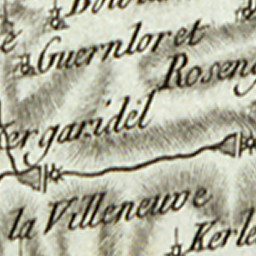 Guernloret
Roseng
ergaridel
la Villeneuve
Kerle